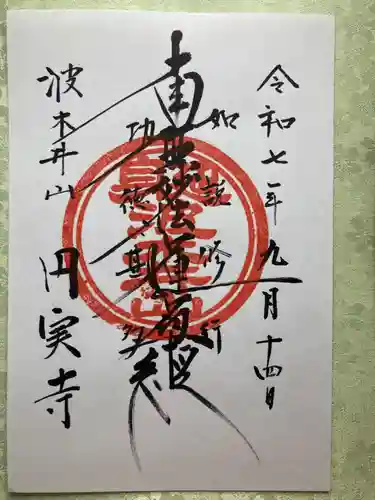 令和七年九月十四日
如説修行
南無妙法蓮華経
功徳甚多
波木井山
円実寺